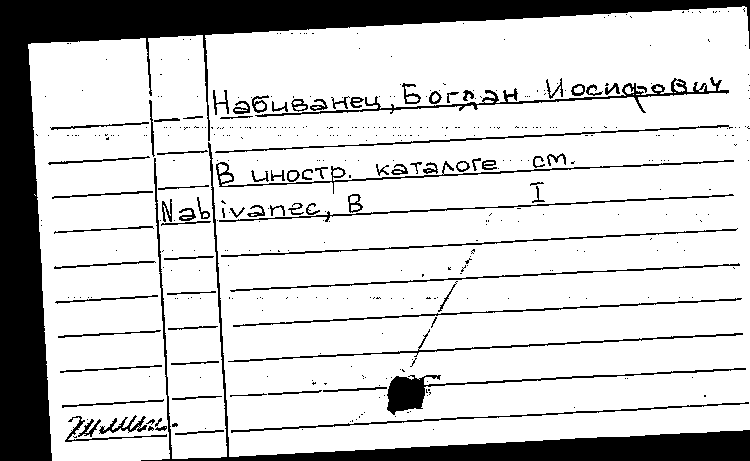 Набиванец, Богдан Иосифович
В иностр. каталоге см.
Nabivanec, B I